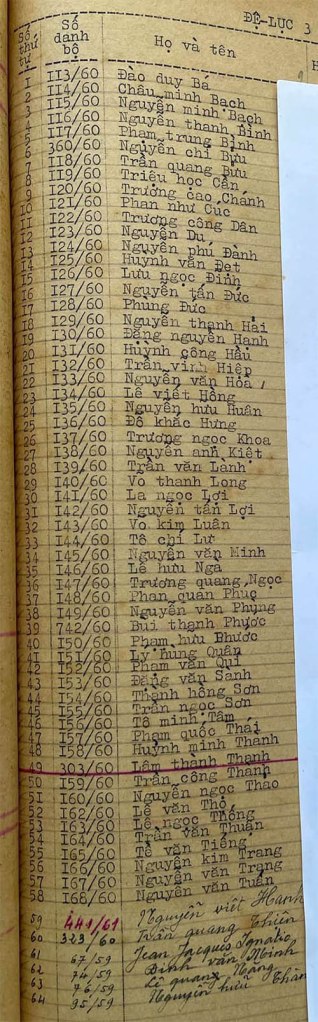 ĐỆ-LỤC 3
Số thứ tự Số danh bộ Họ và tên
1 II3/60 Đào duy Bá
2 II4/60 Châu minh Bạch
3 II5/60 Nguyễn minh Bạch
4 II6/60 Nguyễn thanh Bình
5 II7/60 Phạm trung Bình
6 360/60 Nguyễn chí Bửu
7 II8/60 Trần quang Bửu
8 II9/60 Triệu học Cần
9 I20/60 Trương cao Chánh
10 I2I/60 Phan như Cúc
11 I22/60 Trương công Dân
12 I23/60 Nguyễn Du
13 I24/60 Nguyễn phú Đành
14 I25/60 Huỳnh văn Đẹt
15 I26/60 Lưu ngọc Đính
16 I27/60 Nguyễn tấn Đức
17 I28/60 Phùng Đức
18 I29/60 Nguyễn thanh Hải
19 I30/60 Đặng nguyên Hạnh
20 I3I/60 Huỳnh công Hầu
21 I32/60 Trần vinh Hiệp
22 I33/60 Nguyễn văn Hòa
23 I34/60 Lê viết Hồng
24 I35/60 Nguyễn hưu Huân
25 I36/60 Đỗ khắc Hưng
26 I37/60 Trương ngọc Khoa
27 I38/60 Nguyễn anh Kiệt
28 I39/60 Trần văn Lành
29 I40/60 Vo thanh Long
30 I4I/60 La ngọc Lợi
31 I42/60 Nguyễn tấn Lợi
32 I43/60 Vo kim Luân
33 I44/60 Tô chí Lư
34 I45/60 Nguyễn văn Minh
35 I46/60 Lê hưu Nga
36 I47/60 Trương quang Ngọc
37 I48/60 Phan quan Phục
38 I49/60 Nguyễn văn Phụng
39 742/60 Bui thanh Phước
40 I50/60 Phạm hưu Phước
41 I5I/60 Lý hùng Quân
42 I52/60 Phạm văn Quí
43 I53/60 Đặng văn Sanh
44 I54/60 Thạnh hồng Sơn
45 I55/60 Trần ngọc Sơn
46 I56/60 Tô minh Tâm
47 I57/60 Phạm quốc Thái
48 I58/60 Huỳnh minh Thành
49 303/60 Lâm thanh Thạnh
50 I59/60 Trần công Thạnh
51 I60/60 Nguyễn ngọc Thảo
52 I62/60 Lê văn Thổ
53 I63/60 Lê ngọc Thống
54 I64/60 Trần văn Thuận
55 I65/60 Tề văn Tiếng
56 I66/60 Nguyễn kim Trang
57 I67/60 Nguyễn văn Trạng
58 I68/60 Nguyễn văn Tuấn
59 441/61 Nguyễn viết Hanh
60 323/60 Trần quang Thiên
61 67/59 Jean Jacques Ignatic
62 74/59 Đinh văn Minh
63 76/59 Lê quang Năng
64 95/59 Nguyễn hữu Thân